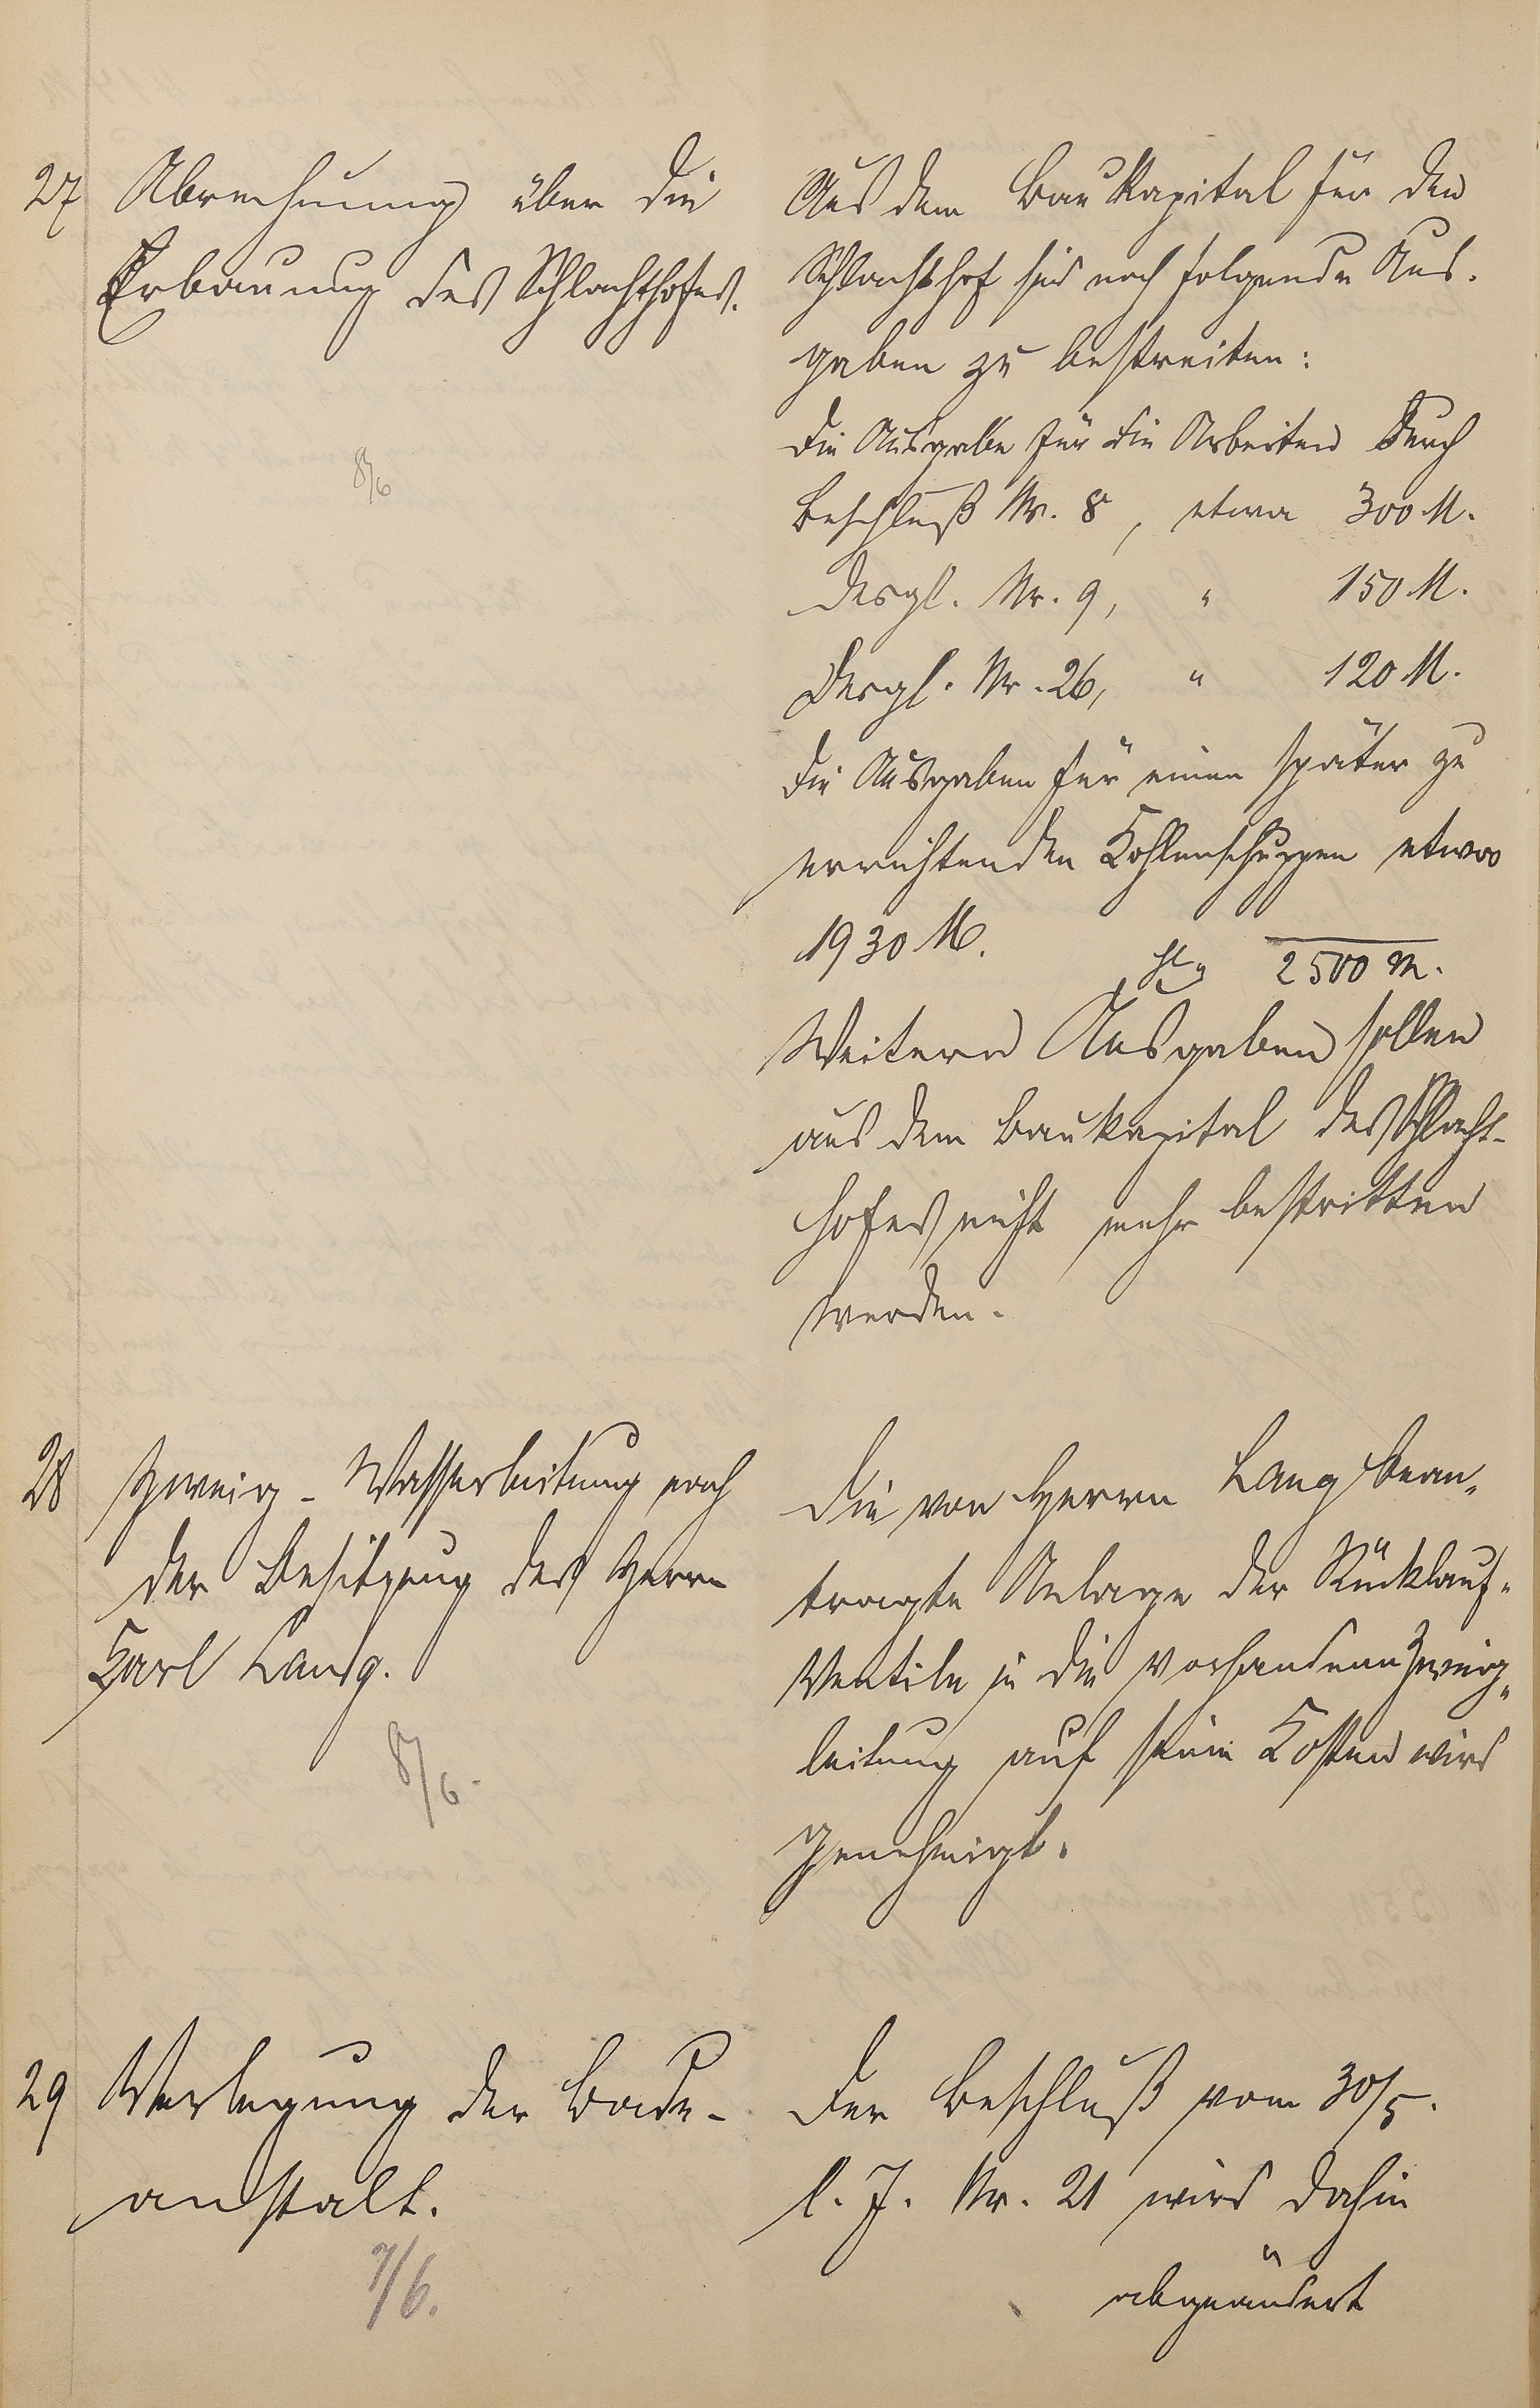 27 Abrechnung über die
Erbauung des Schlachthofes.
8/6
Aus dem Baukapital für den
Schlachthof sind noch folgende Aus-
gaben zu bestreiten:
die Ausgabe für die Arbeiten durch
Beschluß Nr. 8, etwa 300 M.
desgl. Nr. 9, " 150 M.
desgl. Nr. 26, " 120 M.
die Ausgaben für einen später zu
errichtenden Kohlenschuppen etwa
1930 M.
2500 M.
Weitere Ausgaben sollen
aus dem Baukapital des Schlacht-
hofes nicht mehr bestritten
werden.
28 Zweig-Wasserleitung nach
der Besitzung des Herrn
Karl Lang.
8/6.
Die von Herrn Lang bean-
tragte Anlage der Rücklauf-
Ventile in die vorhandene Zweig-
leitung auf seine Kosten wird
genehmigt.
29 Verlegung der Bade-
anstalt.
7/6.
Der Beschluß vom 30/5.
l. J. Nr. 21 wird dahin
abgeändert